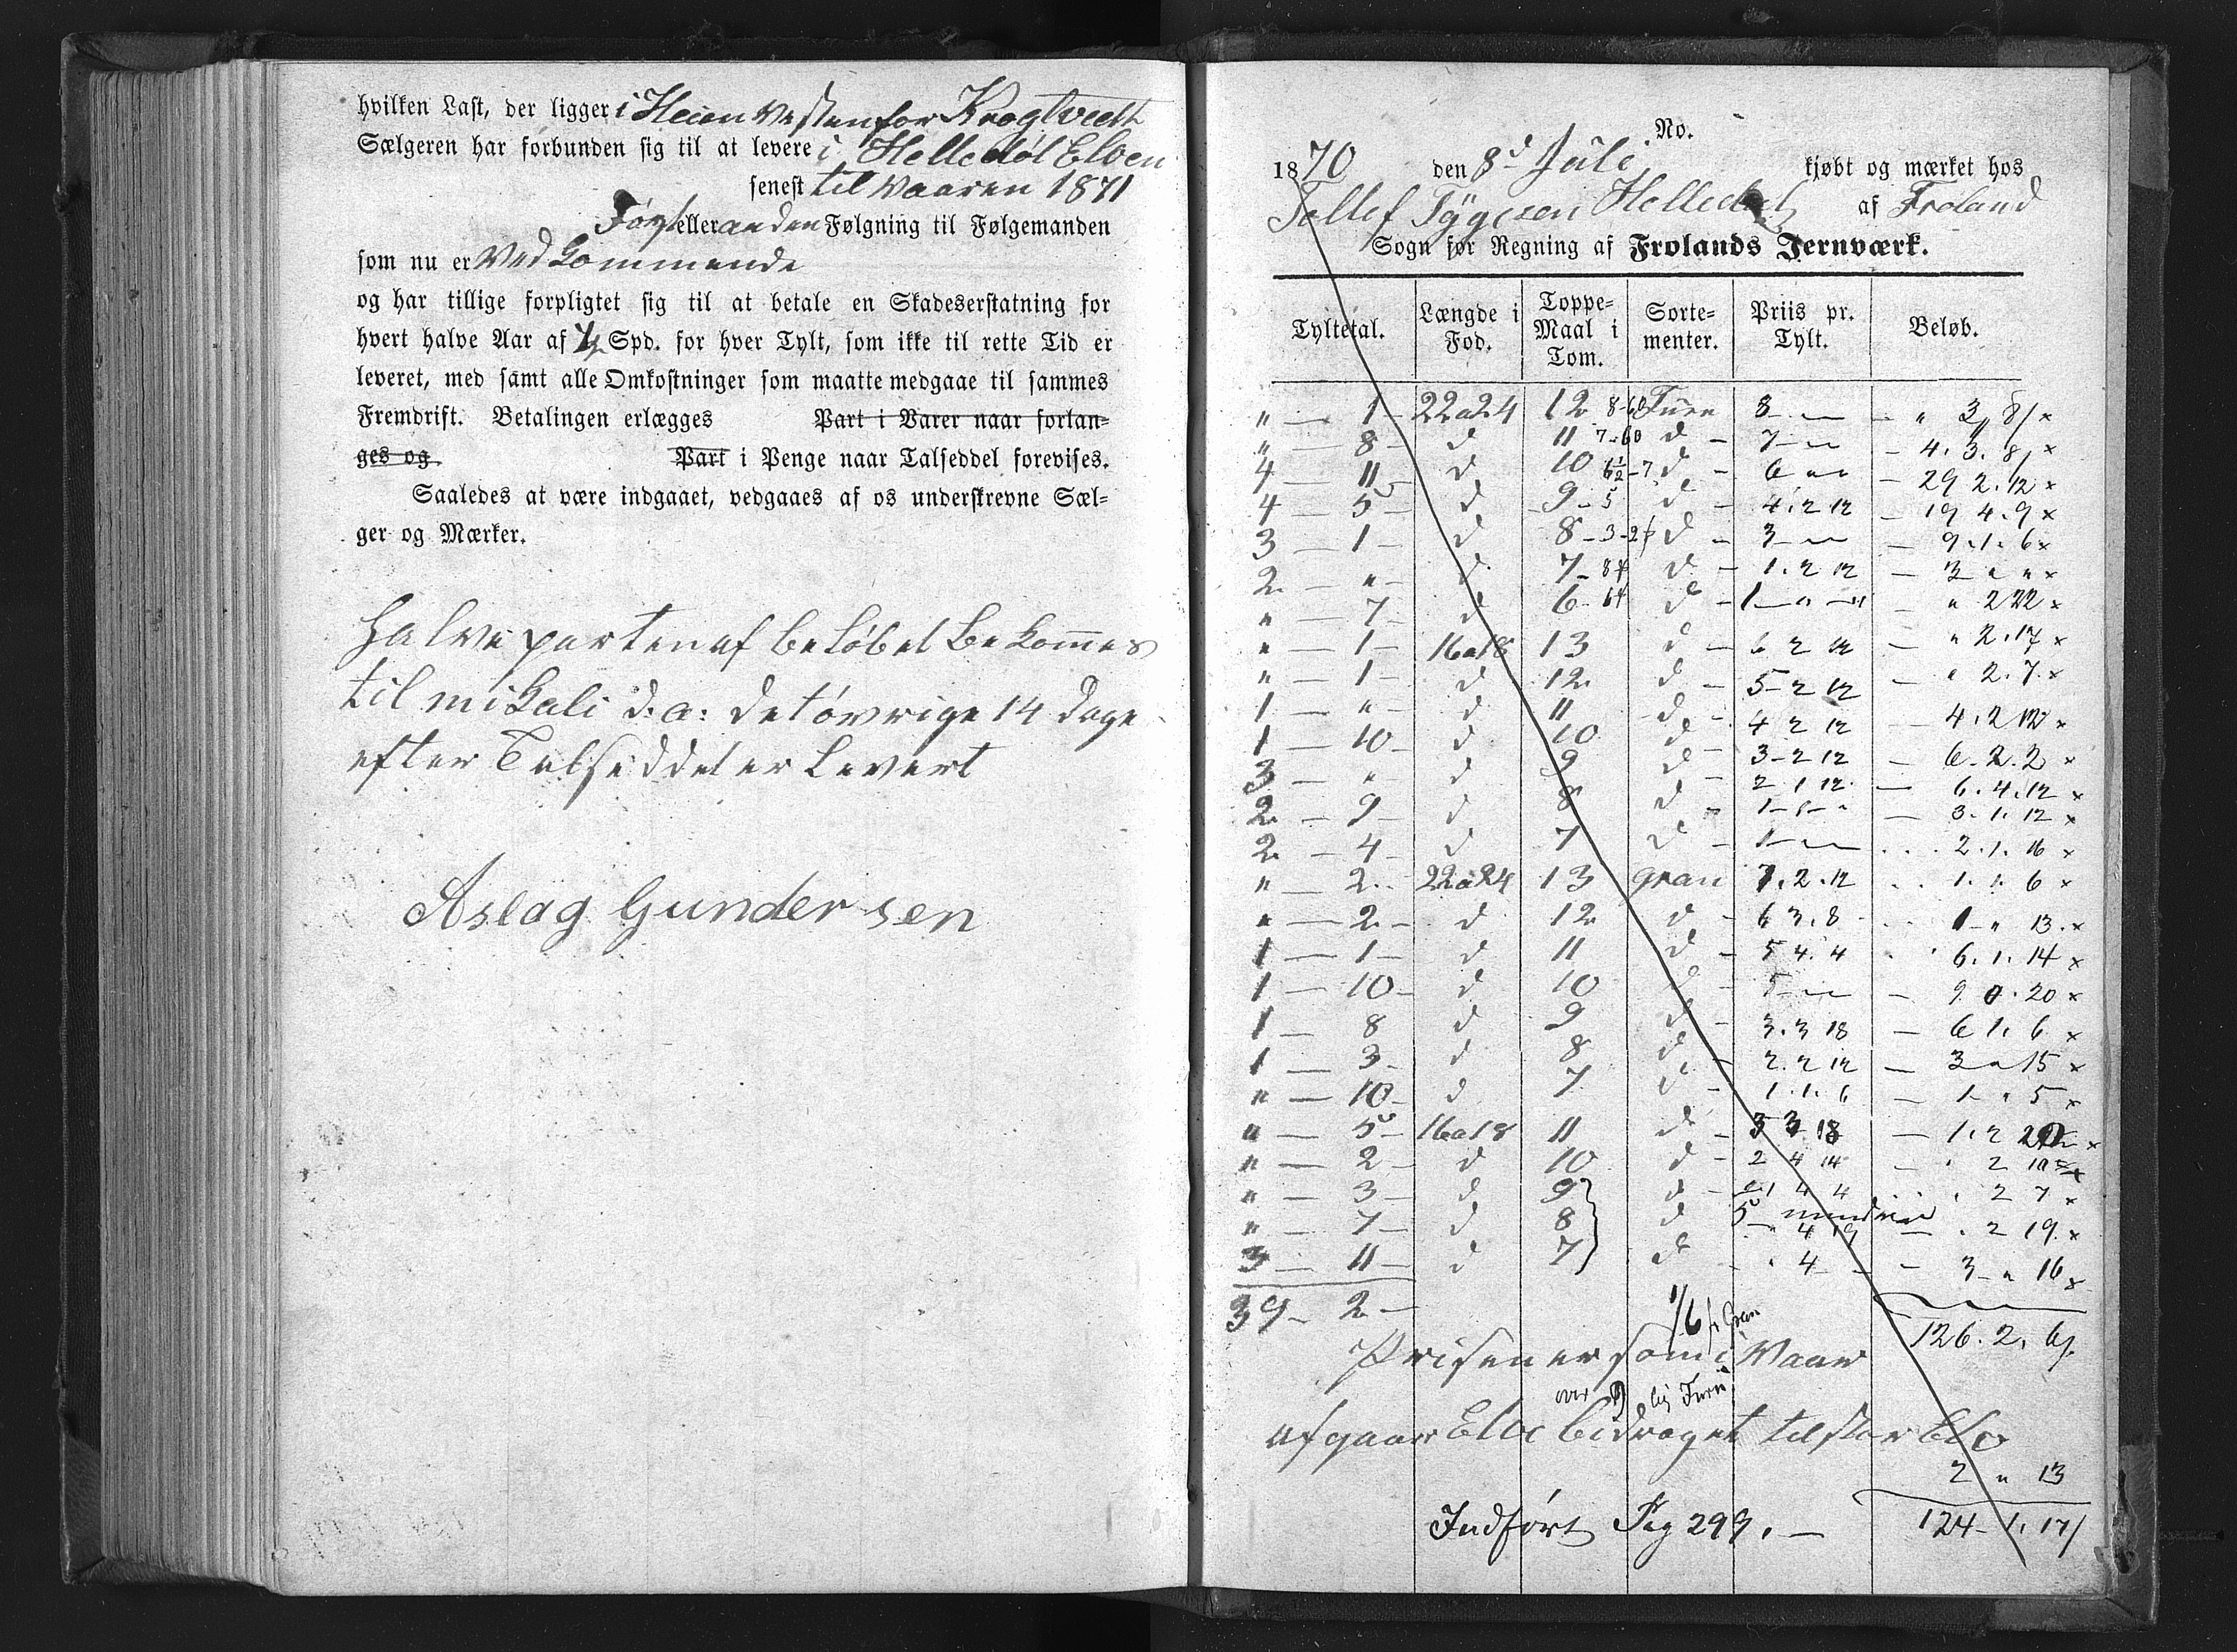 hvilken Last, der ligger i Heien Vestenfor Krogtvedt
Sælgeren har forbunden sig til at levere i Helledøl Elven
senest til Vaaren 1871
Først eller anden Følgning til Følgemanden
som nu er Vedkommende
og har tillige forpligtet sig til at betale en Skadeserstatning for
hvert halve Aar af ½ Spd. for hver Tylt, som ikke til rette Tid er
leveret, med samt alle Omkostninger som maatte medgaae til sammes
Fremdrift. Betalingen erlægges Part i Varer naar forlan-
ges og Part i Penge naar Talseddel forevises.
Saaledes at være indgaaet, vedgaaes af os underskrevne Sæl-
ger og Mærker.
Halve parten af beløbet bekommes
til mikali d: a: det øvrige 14 dage
efter Talseddel er Levert
Aslag Gundersen
No.
1870 den 8d Juli kjøbt og mærket hos
Tollef Tygesen af Froland
Sogn for Regning af Frolands Jernværk.
Tyltetal. Længde i Fod. Toppe-Maal i Tom. Sorte-menter. Priis pr. Tylt. Beløb.
" — 1 — 22 a 24 12 8-60 Furu 8 — — " 3 " 8 x
" — 8 — d 11 7-60 d — 7 — — 4. 3. 8 x
4 — 11 — d 10 6½-7 d — 6 " " — 29 2. 12 x
4 — 5 — d 9 - 5 d — 4. 2 12 — 19 4. 9 x
3 — 1 — d 8 - 3 d — 3 — — 9. 1. 6 x
2 — " — d 7 - 84 d — 1. 2 12 — 3 " " x
" — 7 — d 6 - 64 d — 1 — " — " 2 22 x
" — 1 — 16 a 18 13 d — 6 2 12 — " 2. 17 x
" — 1 — d 12 d — 5 - 2 12 — " 2. 7. x
1 — " — d 11 d — 4 2 12 — 4. 2 12 x
1 — 10 — d 10 d — 3 - 2 12 — 6. 2. 2 x
3 — " — d 9 d — 2 1 12 — 6. 4. 12 x
2 — 9 — d 8 d — 1 - 1 - " — 3. 1. 12 x
2 — 4 — d 7 d — 1 — — 2. 1. 16 x
" — 2 — 22 a 24 13 gran 7. 2. 12 1. 1. 6 x
" — 2 — d 12 d — 6 3. 8 1 - " 13. x
1 — 1 — d 11 d — 5 4. 4 6. 1. 14 x
1 — 10 — d 10 d — 5 — — 9 0. 20 x
1 — 8 d 9 d — 3. 3 18 — 6 1. 6 x
1 — 3 — d 8 d — 2. 2 12 — 3 " 15 x
" — 10 — d 7 d — 1. 1. 6 — 1 - " 5 x
" — 5 — 16 a 18 11 d — 3 3 18 — 1. 2 x
" — 2 — d 10 d — 2 4 14 — " 2 x
" — 3 — d 9 d — 1 4 4 " 2 7 x
" — 7 — d 8 d 4 19 — " 2 19. x
3 — 11 — d 7 d — " 4 — — 3 - " 16 x
39 — 2 —
1/6 f. Gran
126. 2. 6
Prisen er som i Vaar
over 9 Furu
afgaar Elve bidraget til stor Elv
2 " 13
Indført Pag 299. — 124 - 1. 17